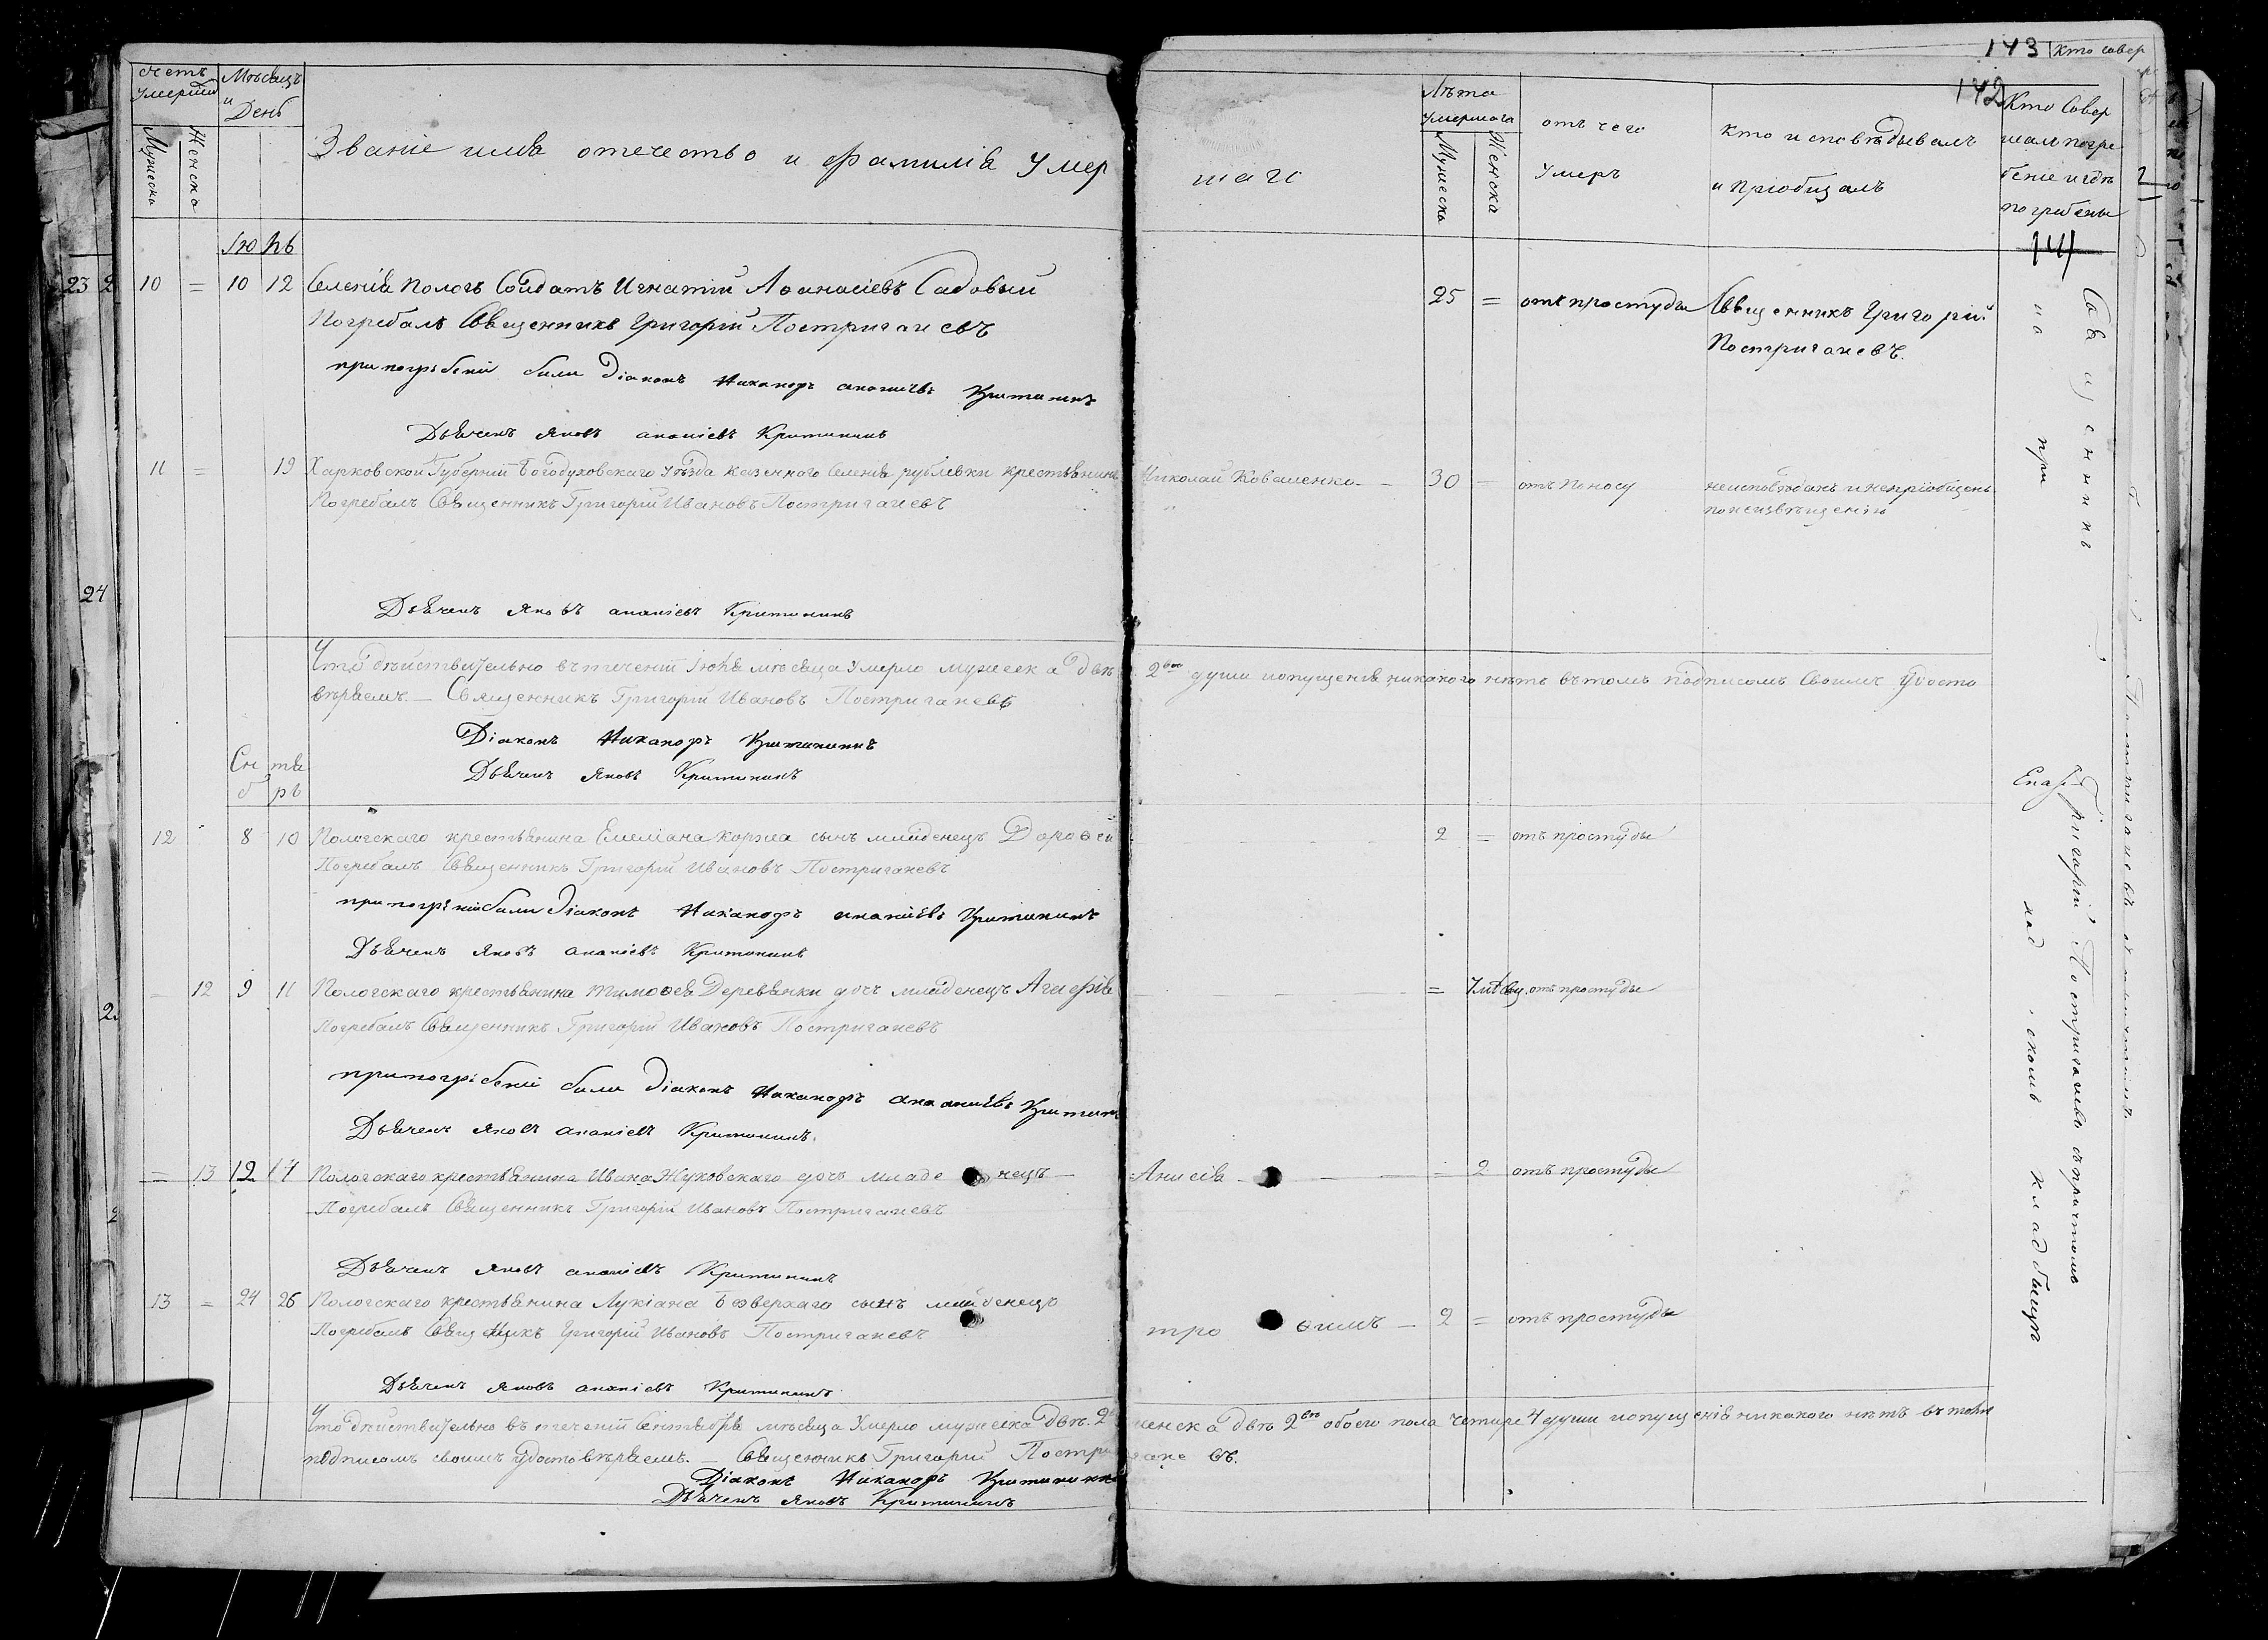 143 Кто совер
142
Счетъ умершихъ
Мѣсяцъ и День
Званіе имя отечество и фамилія умер шаго
Лѣта умершаго
отъ чего умеръ
кто исповѣдывалъ и пріобщалъ
Кто совер шалъ погре беніе и гдѣ погребены
Мужеска
Женска
Мужеска
Женска
141
Іюнь
10 = 10 12 Селенія Пологъ Солдатъ Игнатій Аѳанасіевъ Садовый 25 = отъ простуды Священникъ Григорій
Погребалъ Священникъ Григорій Постригачевъ Постригачевъ.
при погребеніи были Діаконъ Никаноръ ананіевъ Критинин
Дьячекъ Яковъ ананіевъ Критининъ
11 = 19 Харковской Губерніи Богодуховскаго уѣзда казенного Селенія рублевки крестьянинъ Николай Коваленко 30 отъ поносу неисповѣданъ и непріобщенъ
Погребалъ Священникъ Григорій Ивановъ Постригачевъ по неизвѣщенію
Дьячекъ Яковъ ананіевъ Критининъ
Что дѣйствительно въ теченіи Іюня мѣсяца умерло мужеска двѣ 2 души и опущенія никакого нѣтъ въ томъ подписомъ своимъ удосто
вѣряемъ. — Священникъ Григорій Ивановъ Постригачевъ
Діаконъ Никаноръ Критининъ
Дьячекъ Яковъ Критининъ
Сентябрь
12 8 10 Пологскаго крестьянина Емеліана Коржа сынъ младенецъ Дороѳей 2 = отъ простуды
Погребалъ Священникъ Григорій Ивановъ Постригачевъ
были Діаконъ Никаноръ ананіевъ Критининъ
Дьячекъ Яковъ ананіевъ Критининъ
12 9 11 Пологскаго крестьянина Тимоѳея Деревянки дочь младенецъ = 7 мѣсяц. отъ простуды
Погребалъ Священникъ Григорій Ивановъ Постригачевъ
при погребеніи были Діаконъ Никаноръ ананіевъ Критин
Дьячекъ Яковъ ананіевъ Критининъ.
= 13 12 14 Пологскаго крестьянина Ивана Жуковскаго дочь младе нецъ — Анисія = 2 отъ простуды
Погребалъ Священникъ Григорій Ивановъ Постригачевъ
Дьячекъ Яковъ ананіевъ Критининъ
13 = 24 26 Пологскаго крестьянина Лукіана сынъ младенецъ тро ѳимъ — 2 = отъ простуды
Погребалъ Священникъ Григорій Ивановъ Постригачевъ
Дьячекъ Яковъ ананіевъ Критининъ
Что дѣйствительно въ теченіи Сентября мѣсяца умерло мужеска двѣ. 2 женска двѣ 2 обоего пола четыре 4 души и опущенія никакого нѣтъ въ томъ
подписомъ своимъ удостовѣряемъ. — Священникъ Григорій Постригачевъ.
Діаконъ Никаноръ Критининъ
Дьячекъ Яковъ Критининъ
Священникъ Григорій Постригачевъ съ причтомъ
на при кладбищѣ
23
24